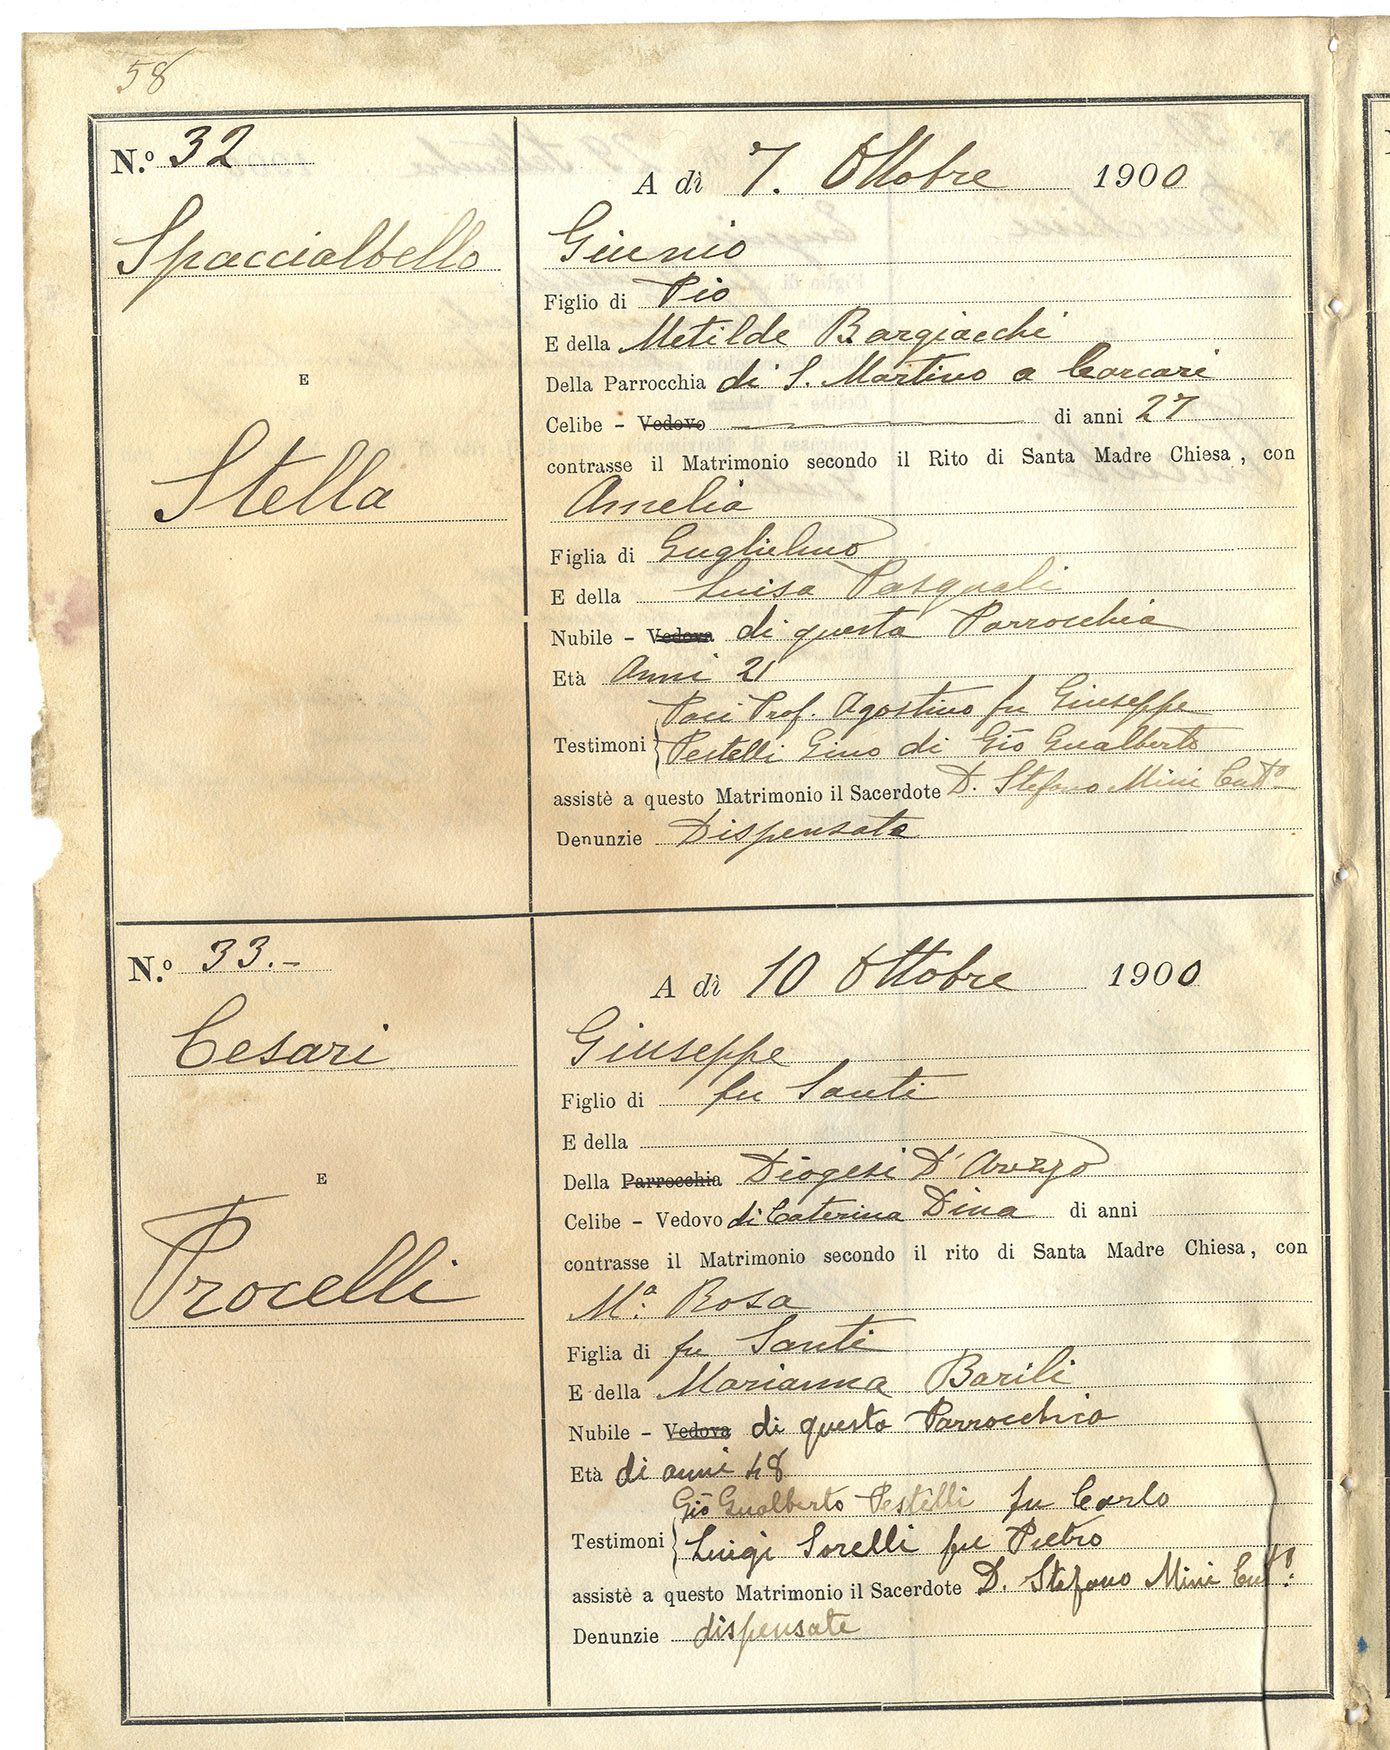 58
N.º 32
A dì 7. Ottobre 1900
Spaccialbello
Giunio
Figlio di Pio
E della Metilde Bargiacchi
E
Della Parrocchia di S. Martino a Carcari
Celibe - Vedovo di anni 27
contrasse il Matrimonio secondo il Rito di Santa Madre Chiesa, con
Stella
Amelia
Figlia di Guglielmo
E della Luisa Pasquali
Nubile - Vedova di questa Parrocchia
Età Anni 21
Paci Prof. Agostino fu Giuseppe
Testimoni Pestelli Gino di Gio Gualberto
assistè a questo Matrimonio il Sacerdote D. Stefano Mini
Denunzie Dispensate
N.º 33.-
A dì 10 Ottobre 1900
Cesari
Giuseppe
Figlio di fu Santi
E della
E
Della Parrocchia Diogesi D'Arezzo
Celibe - Vedovo di Caterina Dina di anni
contrasse il Matrimonio secondo il rito di Santa Madre Chiesa, con
Procelli
M.ª Rosa
Figlia di fu Santi
E della Marianna Barili
Nubile - Vedova di questa Parrocchia
Età di anni 48
Gio Gualberto Pestelli fu Carlo
Testimoni Luigi Sorelli fu Pietro
assistè a questo Matrimonio il Sacerdote D. Stefano Mini
Denunzie dispensate